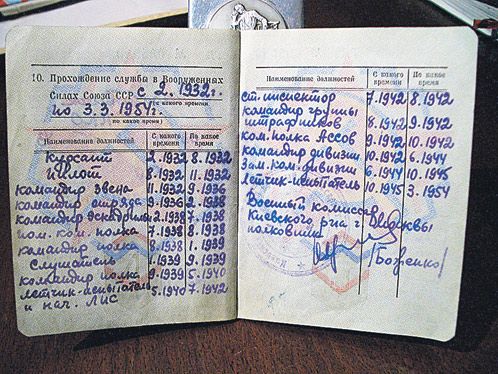 10. Прохождение службы в Вооруженных
Силах Союза ССР с 2. 1932г.
(с какого времени
по 3.3.1954г.
по какое время)
Наименование должностей С какого времени По какое время
Курсант 2.1932 8.1932
Пилот 8.1932 11.1932
командир звена 11.1932 9.1936
командир отряда 9.1936 2.1938
командир эскадрильи 2.1938 7.1938
пом. ком. полка 7.1938 8.1938
командир полка 8.1938 1.1939
Слушатель 1.1939 9.1939
командир полка 9.1939 5.1940
летчик-испытатель 5.1940 7.1942
и нач. ЛИС
Наименование должностей С какого времени По какое время
ст. инспектор 7.1942 8.1942
командир группы
штрафников 8.1942 9.1942
ком. полка Ассов 9.1942 10.1942
командир дивизии 10.1942 6.1944
Зам. ком. дивизии 6.1944 10.1945
летчик-испытатель 10.1945 3.1954
Военный комиссар
Киевского рвк г. Москвы
полковник
/Боженко/